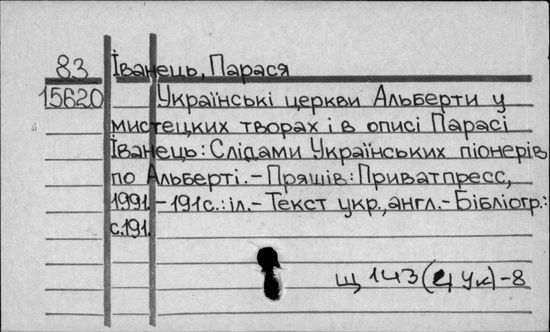 83 Іванець, Парася
15620 Українські церкви Альберти у
мистецких творах і в описі Парасі
Іванець: Слідами Українських піонерів
по Альберті. - Пряшів: Приватпресс,
1991. - 191с.: іл. - Текст укр., англ. - Бібліогр.:
с.191.
Щ 143 (4 Ук) - 8